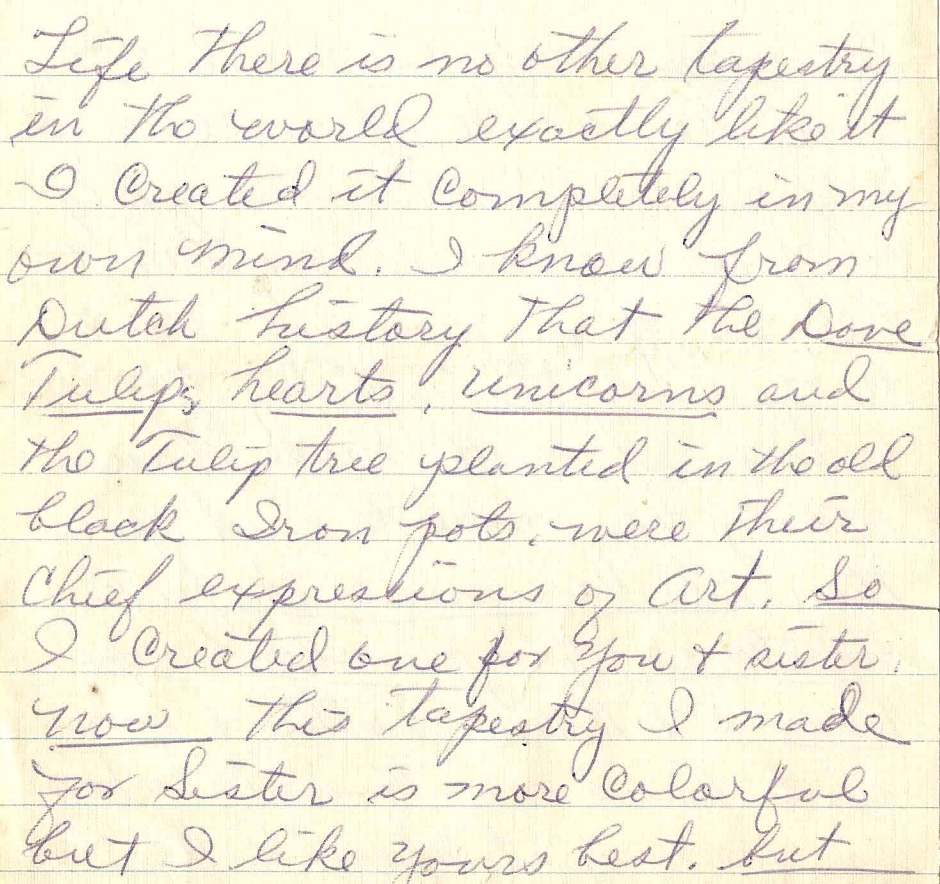 Life There is no other tapestry
in the world exactly like it
I Created it Completely in my
own mind. I know from
Dutch history that the Dove
Tulips, hearts, unicorns and
the Tulip tree planted in the old
black Iron pots, were their
Chief expressions of Art. So
I Created one for you + sister.
now this tapestry I made
for Sister is more Colorful
but I like yours best. but